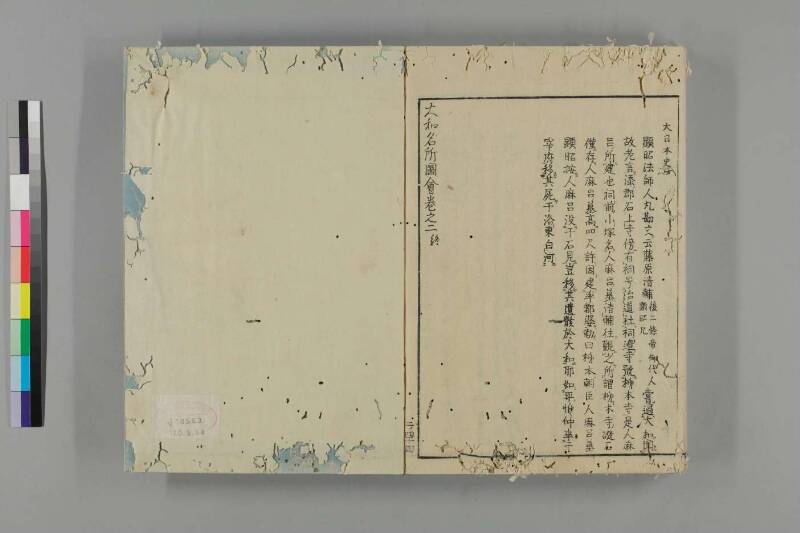 大日本史曰
顯昭法師人丸勘文云藤原清輔後二條帝御代人顯昭兄嘗過大和國
故老言添郡石上寺傍有祠号治道社祠邊寺號柿本寺是人麻
呂所建也祠前小塚名人麻呂墓清輔往觀之所謂柿本寺礎石
僅存人麻呂墓高四尺許因建率都婆勒曰柿本朝臣人麻呂墓
顯昭按人麻呂沒于石見豈移其遺骸於大和耶如平惟仲薨于
宰府移其屍于洛東白河
大和名所圖會卷之二終